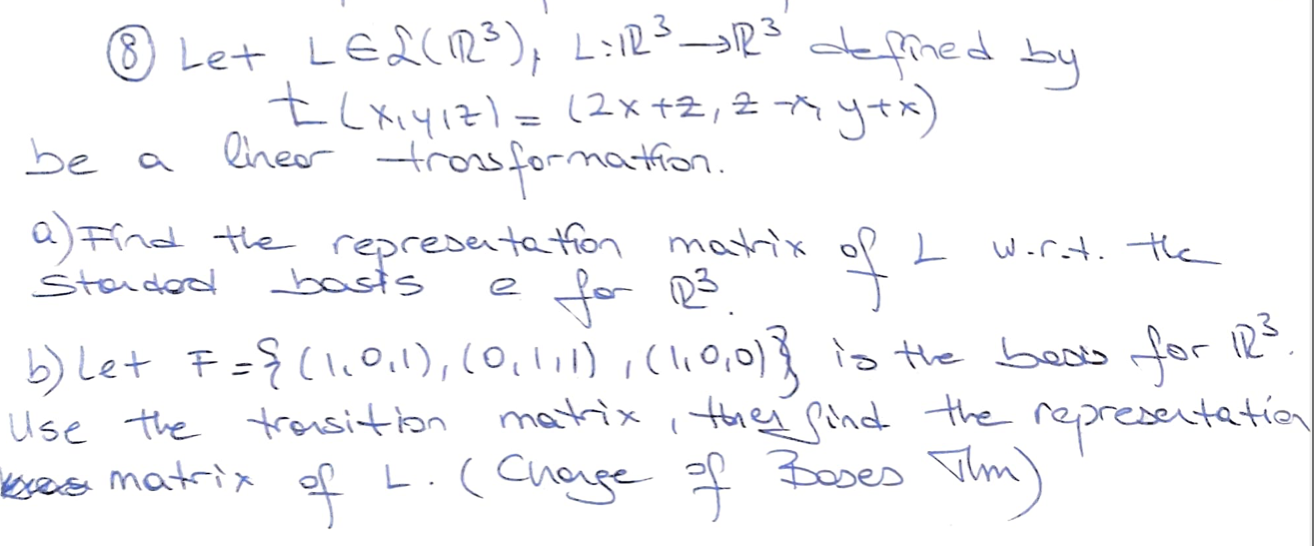 ⑧ Let L∈ℒ(ℝ³), L:ℝ³→ℝ³ defined by
L(x,y,z) = (2x+z, z-x, y+x)
be a linear transformation.
a) Find the representation matrix of L w.r.t. the
standard basis e for ℝ³.
b) Let F={(1,0,1),(0,1,1),(1,0,0)} is the basis for ℝ³.
Use the transition matrix, then find the representation
matrix of L. (Change of Bases Thm)